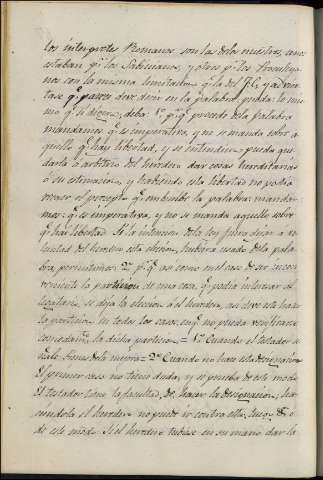 los intérpretes Romanos son las de los nuestros, unos
estaban pr. los Sabinianos, y otros pr. los Proculeya-
nos con la misma limitacion qe. la del J.C. y advier-
tase qe. parece deve decir en la palabra, pueda lo mis-
mo qe. si dijera, deba: 1º, pr. qe. precede la palabra
mandamos qe. es imperativa, y no se manda sobre a-
quello qe. hay libertad, y se entenderia pueda que-
darla á arbitrio del heredero dar cosas hereditarias
ó su estimacion, y habiendo esta libertad no podia
el precepto qe. embuelve la palabra manda-
mos: qe. es imperativa, y no se manda aquello sobre
qe. hay libertad. Si la intencion de la ley fuera decir a vo-
luntad del heredero esta eleccion, hubiera usado de la pala-
bra, permitimos: 2º pr. qe. asi como en el caso de ser incon-
veniente la particion de una cosa, qe. podia interesar al
legatario, se dejó la eleccion á el heredero, asi deve este hacer
la particion en todos los casos, en qe. no pueda verificarse
comodamte. la dicha particion. = 1º Cuando el testador se-
ñale bienes de la mejora: 2º Cuando no hace esta designacion
El primer caso no tiene duda, y se prueba de este modo
El testador tiene la facultad, de hacer la designacion; ha-
ciendola el heredero no puede ir contra ella; luego &. ó
de este modo: Si el heredero tubiese en su mano dar la